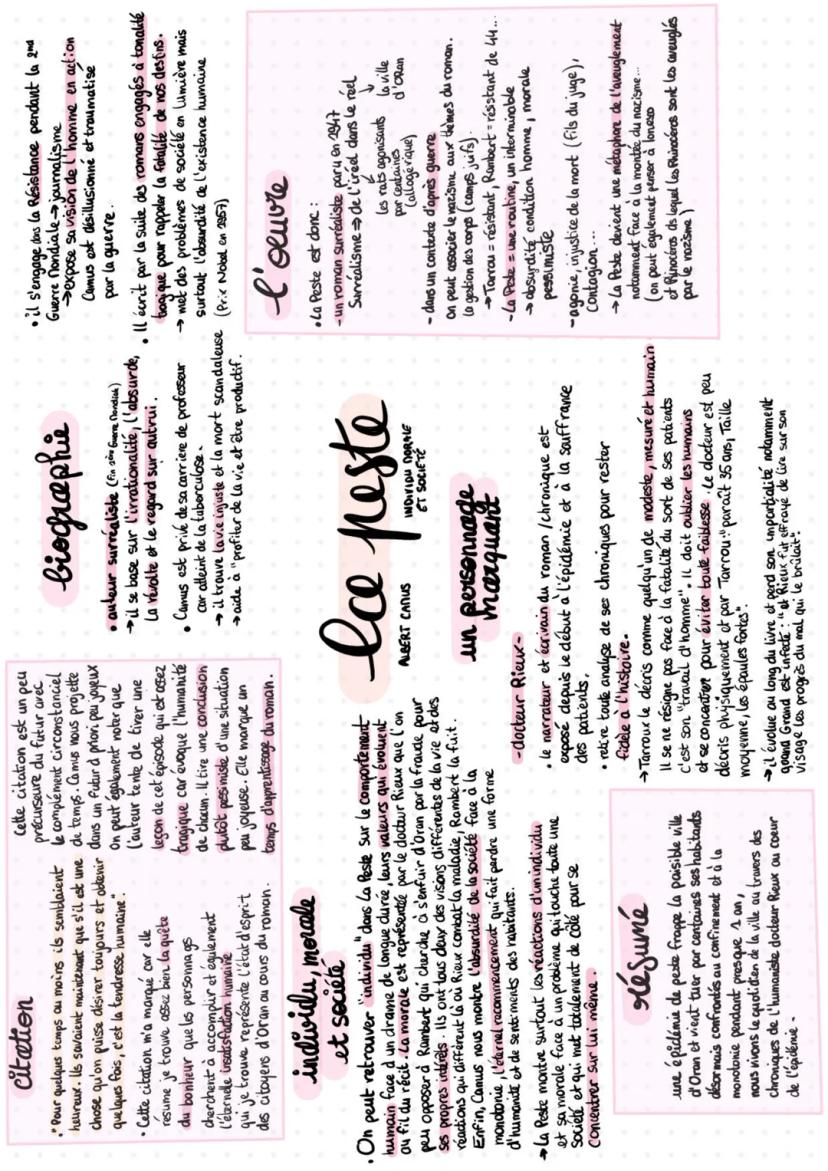 citation
• "Pour quelques temps au moins ils semblaient
heureux. Ils savaient maintenant que s'il est une
chose qu'on puisse désirer toujours et obtenir
quelques fois, c'est la tendresse humaine."
• Cette citation m'a marqué car elle
résume je trouve assez bien la quête
du bonheur que les personnages
cherchent à accomplir et également
l'éternelle insatisfaction humaine
qui je trouve représente l'état d'esprit
des citoyens d'Oran au cours du roman.
Cette citation est un peu
précurseure du futur avec
le complément circonstanciel
de temps. Camus nous projette
dans un futur à priori peu joyeux
On peut également noter que
l'auteur tente de tirer une
leçon de cet épisode qui est assez
tragique car évoque l'humanité
de chacun. Il tire une conclusion
plutôt pessimiste d'une situation
peu joyeuse. Elle marque un
temps d'apprentissage du roman.
biographie
• auteur surréaliste (Fin 2ème Guerre Mondiale)
→ il se base sur l'irrationalité, l'absurde,
la révolte et le regard sur autrui.
• Camus est privé de sa carrière de professeur
car atteint de la tuberculose.
→ il trouve la vie injuste et la mort scandaleuse
→ aide à "profiter de la vie et être productif.
• il s'engage dans la Résistance pendant la 2nd
Guerre Mondiale → journalisme
→ expose sa vision de l'homme en action
Camus est désillusionné et traumatisé
par la guerre.
• Il écrit par la suite des romans engagés à tonalité
tragique pour rappeler la fatalité de nos destins.
→ met des problèmes de société en lumière mais
surtout l'absurdité de l'existence humaine
(Prix Nobel en 1957)
La peste
ALBERT CAMUS
INDIVIDU MORALE
ET SOCIÉTÉ
individu, morale
et société
• On peut retrouver "individu" dans La Peste sur le comportement
humain face à un drame de longue durée, leurs valeurs qui évoluent
au fil du récit. La morale est représentée par le docteur Rieux que l'on
peu opposer à Rambert qui cherche à s'enfuir d'Oran par la fraude pour
ses propres intérêts. Ils ont tous deux des visions différentes de la vie et des
réactions qui diffèrent là où Rieux combat la maladie, Rambert la fuit.
Enfin, Camus nous montre l'absurdité de la société face à la
monotonie, l'éternel recommencement qui fait perdre une forme
d'humanité et de sentiments des habitants.
→ La Peste montre surtout les réactions d'un individu
et sa morale face à un problème qui touche toute une
société et qui met totalement de côté pour se
concentrer sur lui même.
un personnage
marquant
-docteur Rieux-
• le narrateur et écrivain du roman / chronique est
exposé depuis le début à l'épidémie et à la souffrance
des patients.
• retire toute analyse de ses chroniques pour rester
fidèle à l'histoire.
→ Tarroux le décris comme quelqu'un de modeste, mesuré et humain
Il se ne résigne pas face à la fatalité du sort de ses patients
c'est son "travail d'homme". Il doit oublier les humains
et se concentrer pour éviter toute faiblesse. Le docteur est peu
décris physiquement et par Tarrou: "paraît 35 ans, Taille
moyenne, les épaules fortes".
→ il évolue au long du livre et perd son impartialité notamment
quand Grand est infecté : "et Rieux fut effrayé de lire sur son
visage les progrès du mal qui le brûlait".
l'oeuvre
• La Peste est donc :
- un roman surréaliste paru en 1947
Surréalisme ⇒ de l'irréel dans le réel
les rats agonisants
par centaines
(allégorique)
la ville
d'Oran
- dans un contexte d'après guerre
on peut associer le nazisme aux thèmes du roman.
la gestion des corps (camps juifs).
→ Tarrou = résistant, Rambert = résistant de 44...
- La Peste = une routine, un interminable
→ absurdité condition homme, morale
pessimiste
- agonie, injustice de la mort (fils du juge),
contagion...
→ La Peste devient une métaphore de l'aveuglement
notamment face à la montée du nazisme...
(on peut également penser à Ionesco
et Rhinocéros ds lequel les Rhinocéros sont les aveuglés
par le nazisme)
résumé
une épidémie de peste frappe la paisible ville
d'Oran et vient tuer par centaines ses habitants
désormais confrontés au confinement et à la
monotonie pendant presque 1 an,
nous vivons le quotidien de la ville au travers des
chroniques de l'humaniste docteur Rieux au coeur
de l'épidémie -